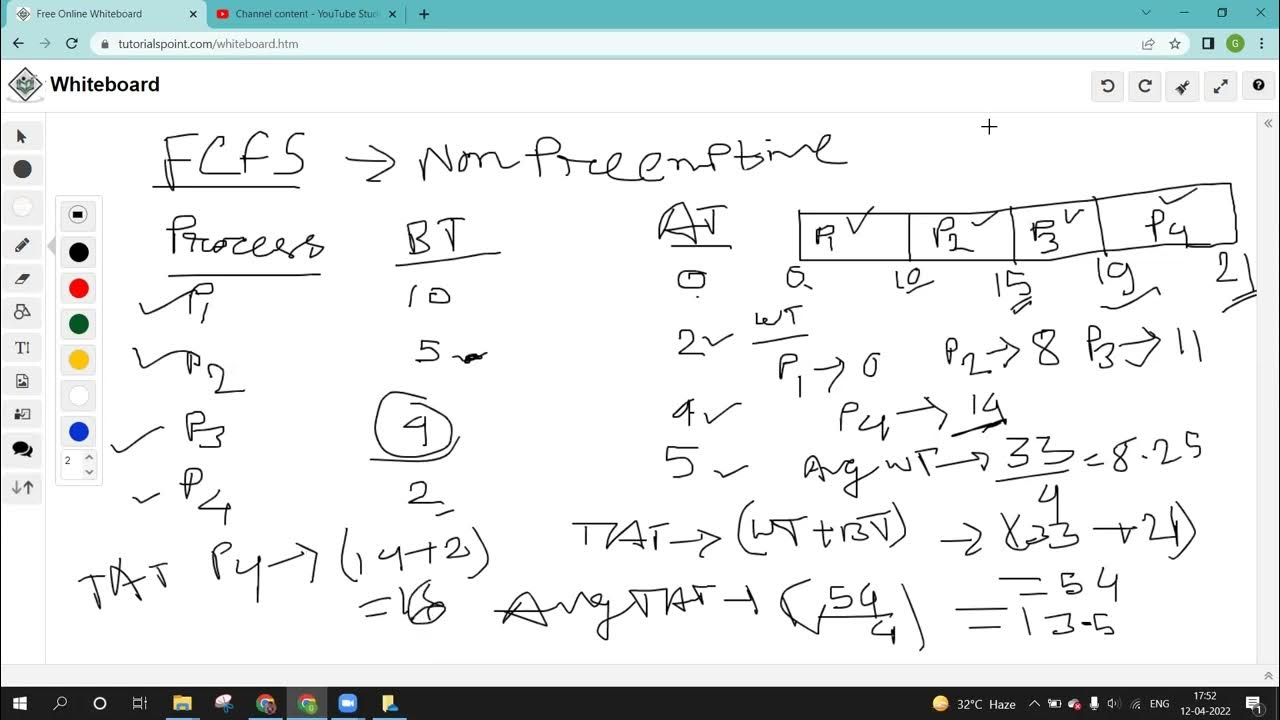 Free Online Whiteboard
Channel content - YouTube Stud
tutorialspoint.com/whiteboard.htm
G
Whiteboard
FCFS → Non Preemptive
Process BT AT
P1 10 0
P2 5 2
P3 4 4
P4 2 5
P1 P2 P3 P4
0 10 15 19 21
WT
P1 → 0 P2 → 8 P3 → 11
P4 → 14
Avg WT → 33/4 = 8.25
TAT → (WT + BT) → (33 + 21)
= 54
TAT P4 → (14+2)
= 16
Avg TAT → (54/4) = 13.5
TI
2
32°C Haze
ENG
17:52
12-04-2022
1